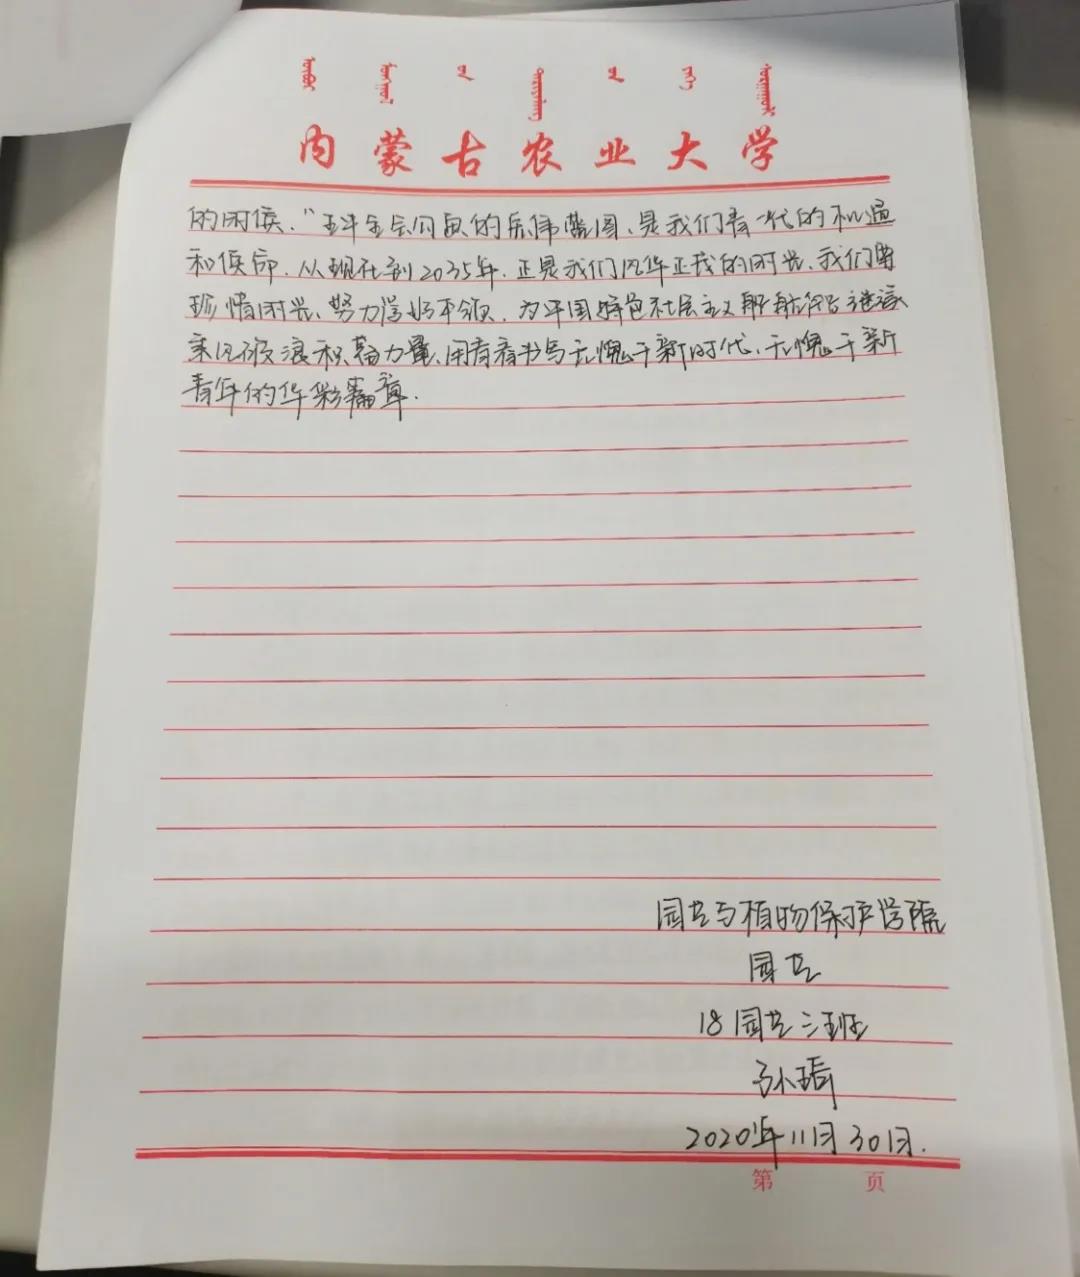 内蒙古农业大学
的时候，"五中全会勾画的宏伟蓝图，是我们青一代的机遇
和使命，从现在到2035年，正是我们风华正茂的时光，我们要
珍惜时光、努力学好本领，为中国特色社会主义
乘风破浪积蓄力量，用青春书写无愧于新时代、无愧于新
青年的华彩篇章．
园艺与植物保护学院
园艺
18园艺三班
孙瑀
2020年11月30日．
第 页